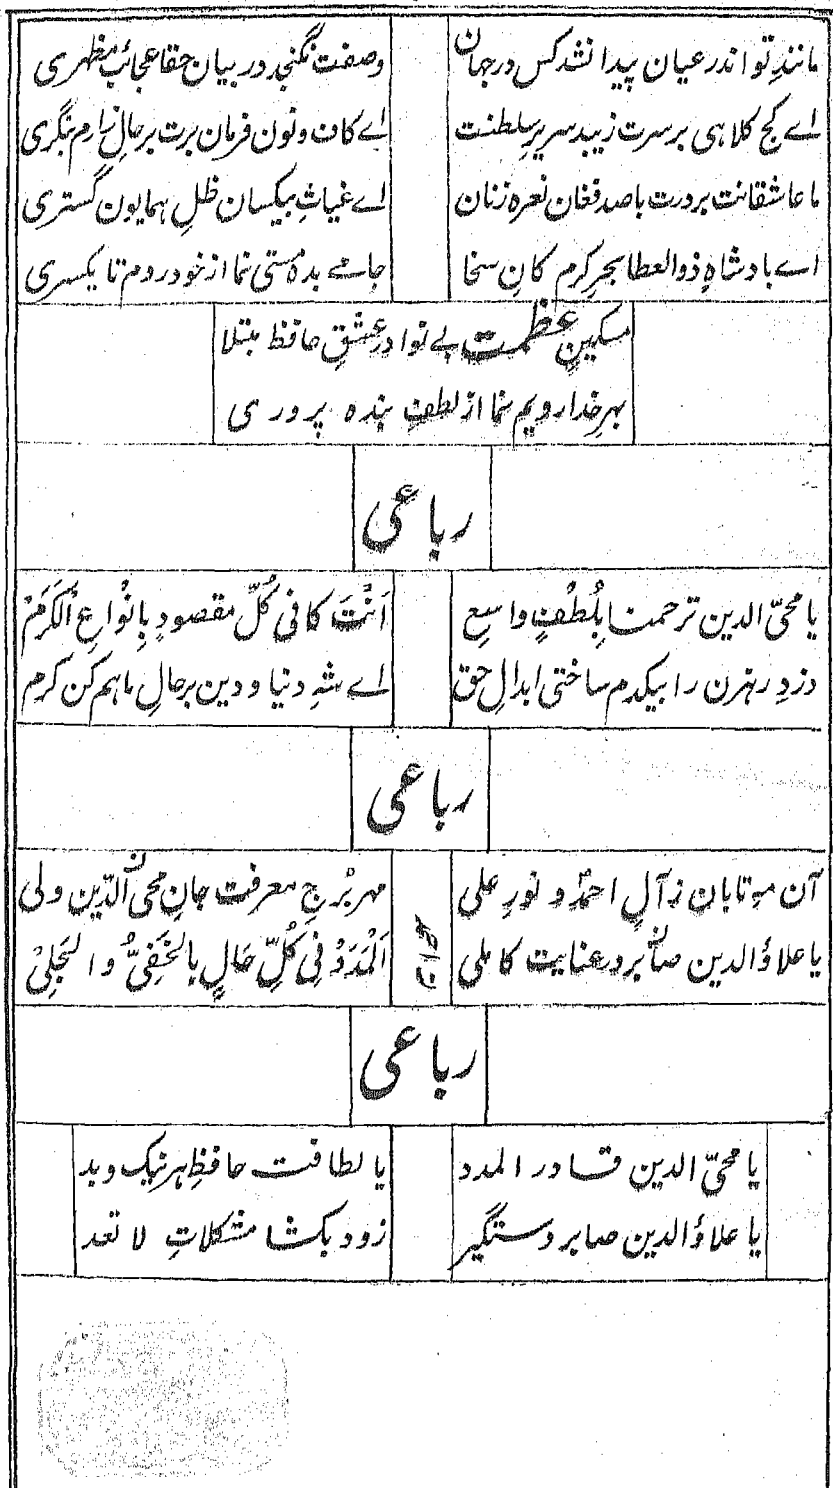 مانندِ تو اندر عیان پیدا نشد کس در جہان وصفت نگنجد در بیان حقا عجائب مظہری
اے کج کلاہی برسرت زیبد سریرِ سلطنت اے کاف و نون فرمان برت برحالِ زارم بنگری
ما عاشقانت بردرت باصد فغان نعرہ زنان اے غیاثِ بیکسان ظلِ ہمایون گستری
اے بادشاہِ ذوالعطا بحرِ کرم کانِ سخا جامے بدہ مستی نما از خود روم تا یکسری
مسکین عظمت بے نوا در عشقِ حافظ مبتلا
بہرِ خدا رویم نما از لطفِ بندہ پروری
رباعی
یا محیّ الدین ترحمنا بِلُطْفٍ واسِع اَنْتَ کافی کُلِّ مقصودٍ بِاَنْواعِ اَلکَرَمْ
دزدِ رہزن را بیکدم ساختی ابدالِ حق اے شہِ دنیا و دین برحالِ ماہم کن کرم
رباعی
آن مہِ تابان زآلِ احمدؐ و نورِ علی مہر بُرجِ معرفت جانِ محی الدّین ولی
یا علاؤالدین صابر در عنایت کاملی اَلْمَدَدْ فِی کُلِّ حَالٍ بالخَفِیُّ والجَلِیْ
رباعی
یا محیّ الدین قادر المدد یا لطافت حافظِ ہر نیک وبد
یا علاؤالدین صابر دستگیر زود بکشا مشکلاتِ لا تعد